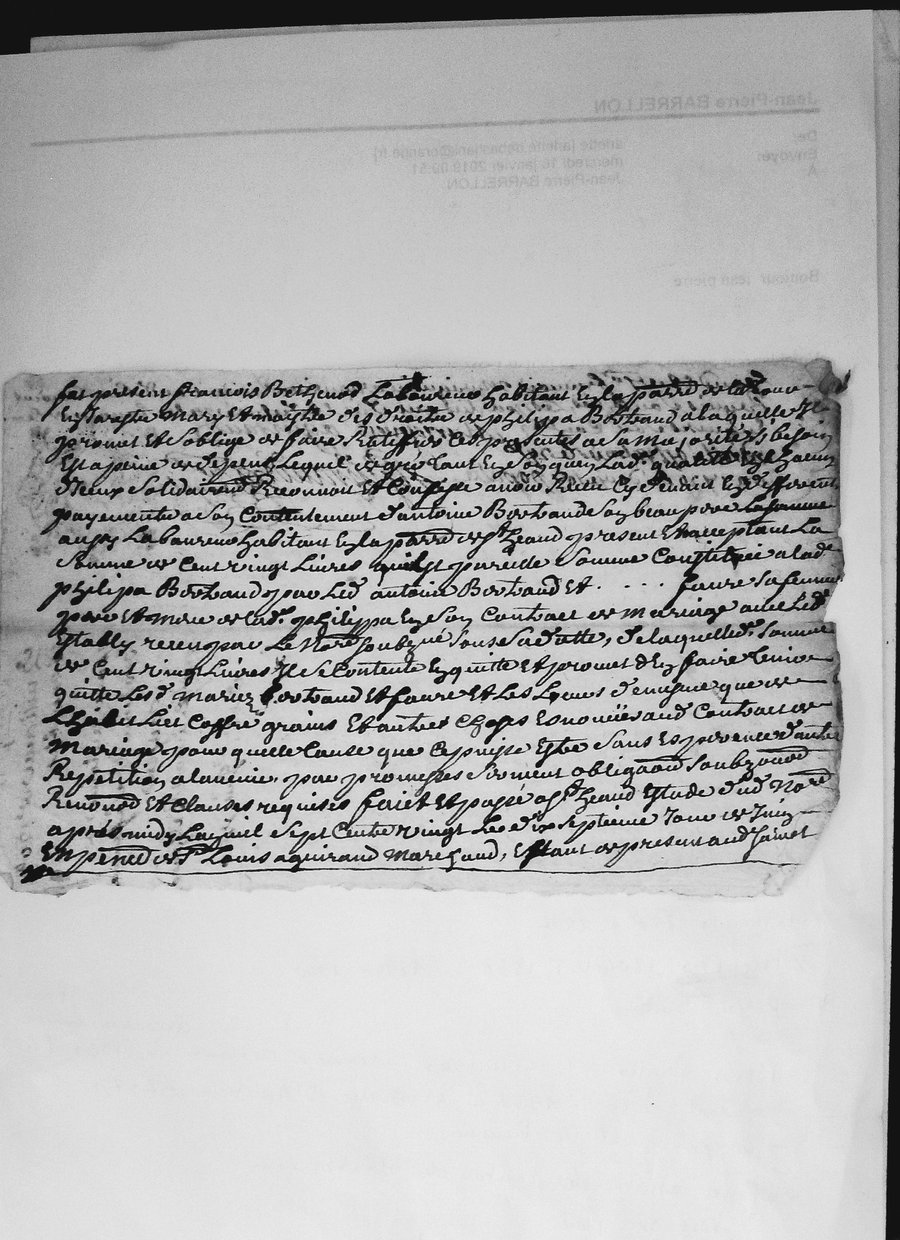 Jean-Pierre BARRELLON
De:
Envoyé:
À
mercredi 16 janvier 2019 09:51
Jean-Pierre BARRELLON
Bonjour jean pierre
fut present francois Bethenod Laboureur habitant En la parrd de
Mary Et maistre des droitz de philipa Bertrand a laquelle Il
promet Et soblige de faire Ratiffier Ces presentes a sa majorité sy besoin
Est a peine de depens Lequel de gré tant En son que En Lad. qualité
d'ieux solidairemt Reconnoit Et Confesse avoir Receu Cy devant En
payements a son Contentement d'antoine Bertrand son beau pere
aussy Laboureur habitant En la parrd de St heand present Et acceptant La
somme de Cent vingt Livres pareille somme Constituée a lade
philipa Bertrand par Led antoine Bertrand Et . . . . faure sa femme
pere Et mere de lad. philipa En son Contract de mariage avec Led.
Estably receu par Le Nore soubzné sous sa datte, de laquelle d. somme
de Cent vingt Livres Il se Contente En quitte Et promet d'En faire tenir
quitte Lesd mariez Bertrand Et faure Et Les Leurs de mesme que de
L'habit Lict Coffre grains Et autres Choses Esnoncées aud Contract de
Mariage pour quelle Cause que Ce puisse Estre sans Esperence d'autre
Repetition a l'avenir, par promesses serment obligaons soubz
Renonons Et Clauses requises faict Et passé a St heand Estude dud Nore
apres midy Lan mil sept Cents vingt Le dix septieme Jour de Juin
En pence de Sr Louis aguirand Marchand, Estant de present aud